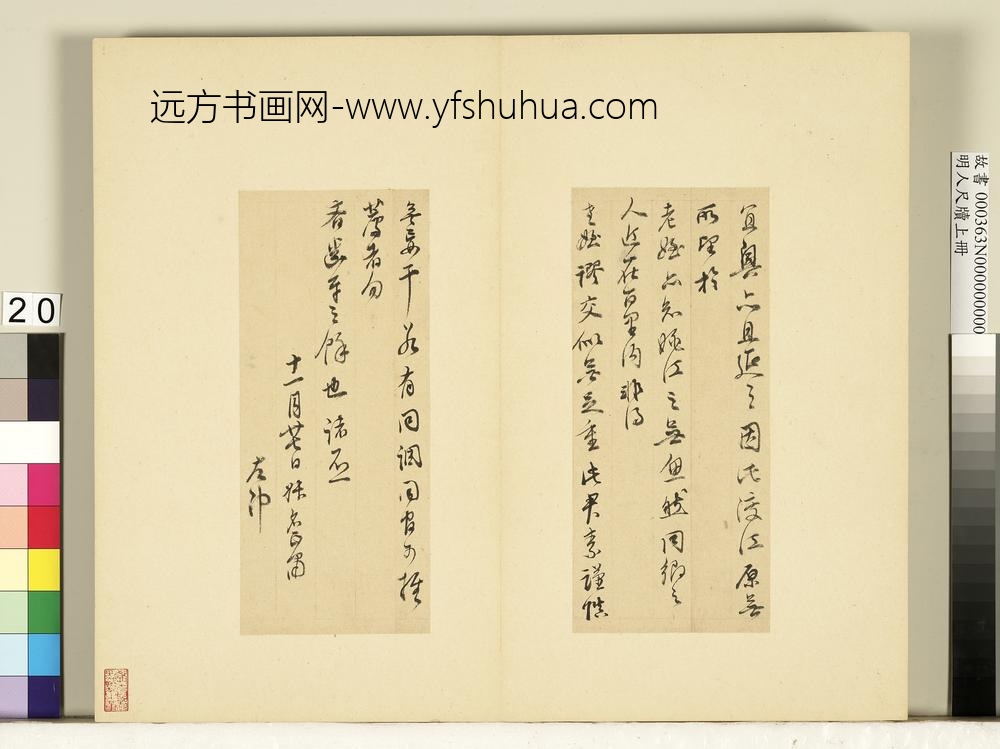 远方书画网-www.yfshuhua.com
故書 000363N000000000
明人尺牘上冊
20
宜興亦且延之因此渡江原無
所望於
老姪亦知臨江之無魚然同鄉之
人近在百里內非得
老姪謬交似無足重此君素謹慎
無妄干若有同調同官可推
薦者勿
吝齒牙之餘也諸不一
十一月廿七日
左沖